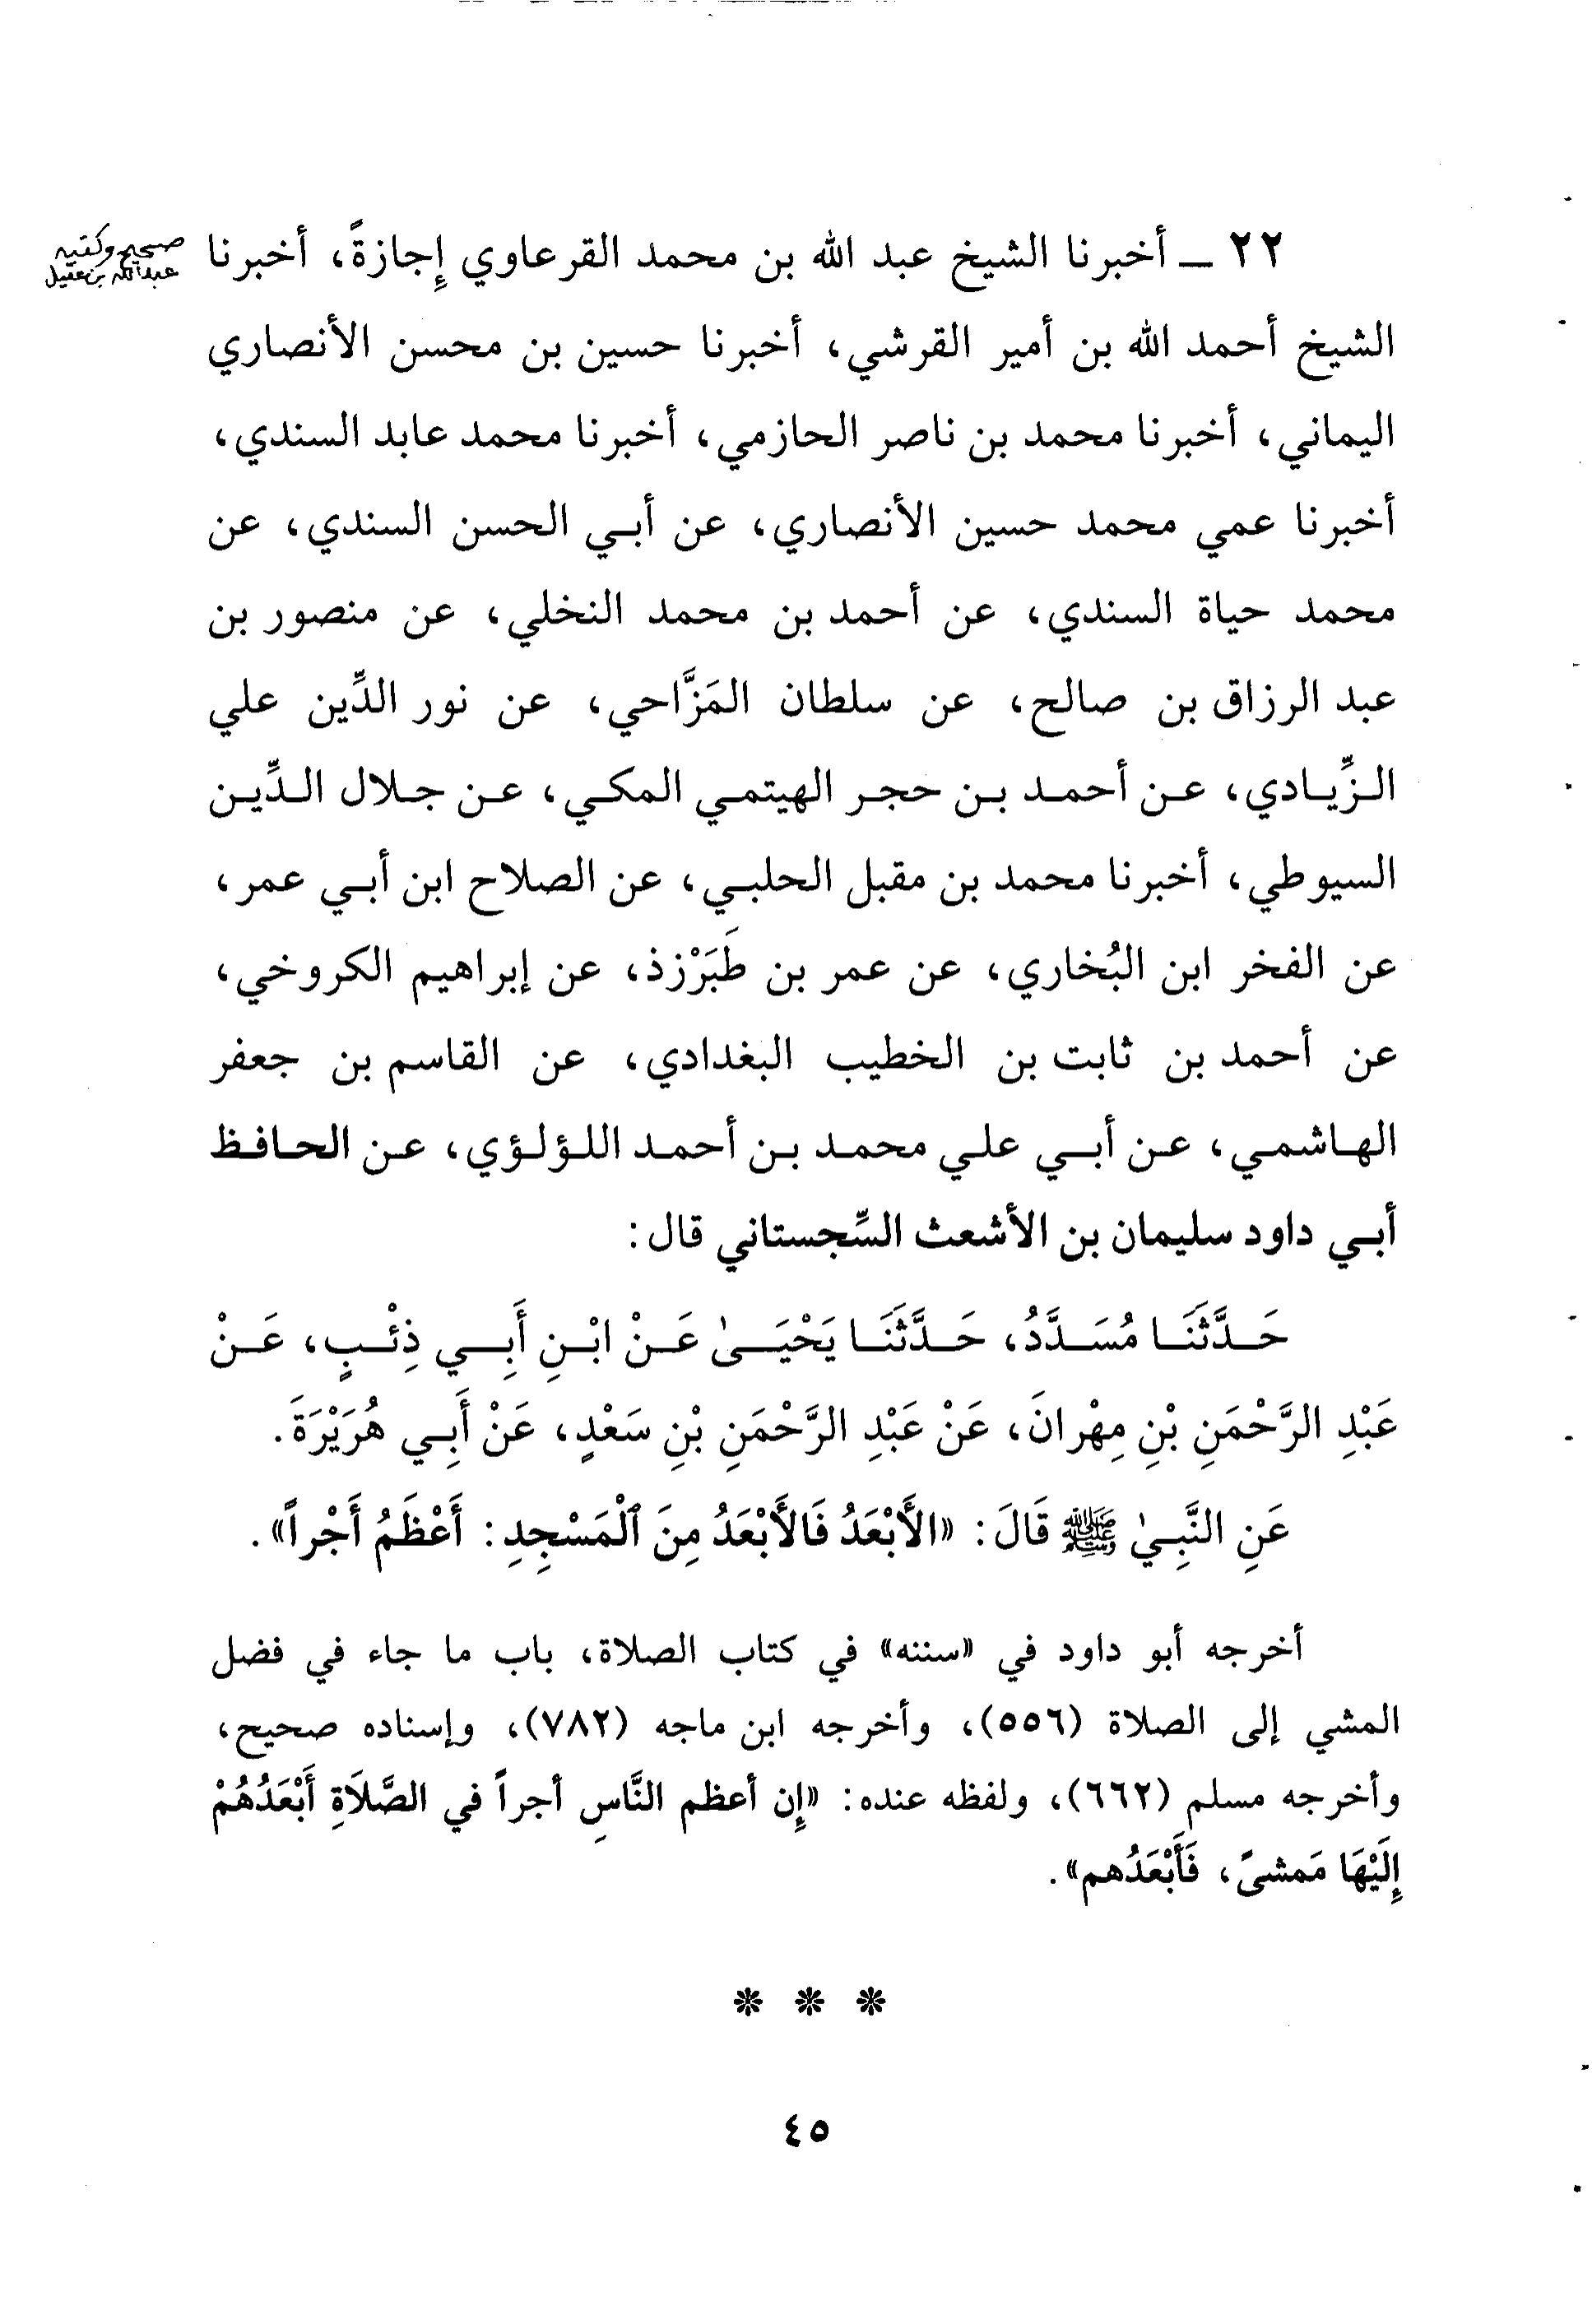 ٢٢ ــ أخبرنا الشيخ عبد الله بن محمد القرعاوي إِجازةً، أخبرنا
صحيح وكتبه
عبدالله بن عقيل
الشيخ أحمد الله بن أمير القرشي، أخبرنا حسين بن محسن الأنصاري
اليماني، أخبرنا محمد بن ناصر الحازمي، أخبرنا محمد عابد السندي،
أخبرنا عمي محمد حسين الأنصاري، عن أبي الحسن السندي، عن
محمد حياة السندي، عن أحمد بن محمد النخلي، عن منصور بن
عبد الرزاق بن صالح، عن سلطان المَزَّاحي، عن نور الدِّين علي
الزِّيادي، عن أحمد بن حجر الهيتمي المكي، عن جلال الدِّين
السيوطي، أخبرنا محمد بن مقبل الحلبي، عن الصلاح ابن أبي عمر،
عن الفخر ابن البُخاري، عن عمر بن طَبَرْزذ، عن إبراهيم الكروخي،
عن أحمد بن ثابت بن الخطيب البغدادي، عن القاسم بن جعفر
الهاشمي، عن أبي علي محمد بن أحمد اللؤلؤي، عن الحافظ
أبي داود سليمان بن الأشعث السِّجستاني قال:
حَدَّثَنَا مُسَدَّدُ، حَدَّثَنَا يَحْيَىٰ عَنْ ابْنِ أَبِي ذِئْبٍ، عَنْ
عَبْدِ الرَّحْمَنِ بْنِ مِهْرانَ، عَنْ عَبْدِ الرَّحْمَنِ بْنِ سَعْدٍ، عَنْ أَبِي هُرَيْرَةَ.
عَنِ النَّبِيٰ ﷺ قَالَ: «الأَبْعَدُ فَالأَبْعَدُ مِنَ ٱلْمَسْجِدِ: أَعْظَمُ أَجْراً».
أخرجه أبو داود في «سننه» في كتاب الصلاة، باب ما جاء في فضل
المشي إلى الصلاة (٥٥٦)، وأخرجه ابن ماجه (٧٨٢)، وإسناده صحيح،
وأخرجه مسلم (٦٦٢)، ولفظه عنده: «إِن أعظم النَّاسِ أجراً في الصَّلاَةِ أَبْعَدُهُمْ
إِلَيْهَا مَمشىً، فَأَبْعَدُهم».
* * *
٤٥